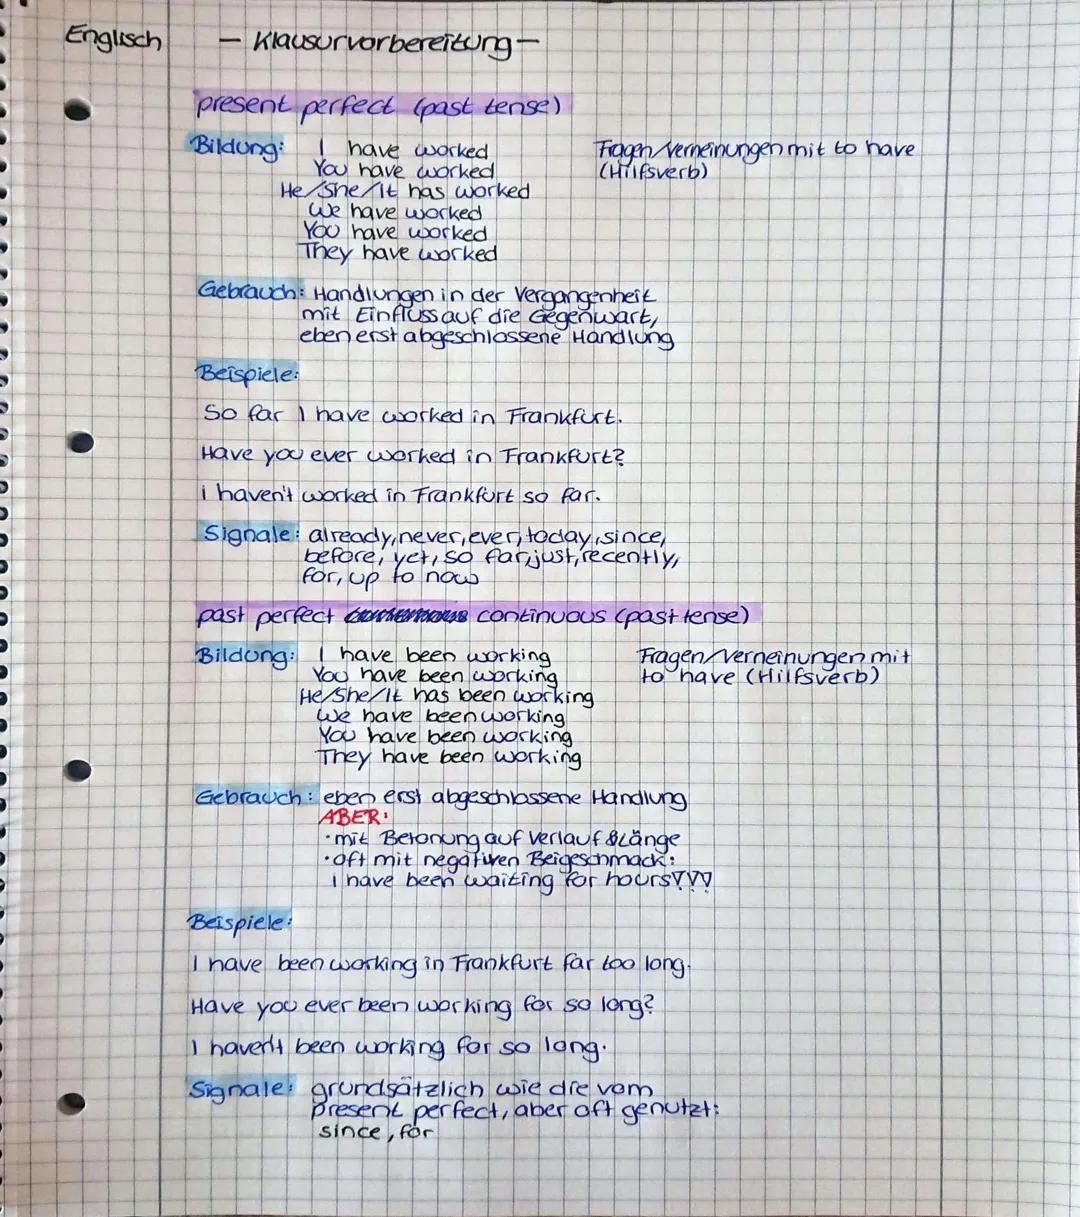 Englisch - Klausurvorbereitung -
present perfect (past tense)
Bildung: I have worked
You have worked
He/She/It has worked
We have worked
You have worked
They have worked
Fragen/Verneinungen mit to have
(Hilfsverb)
Gebrauch: Handlungen in der Vergangenheit
mit Einfluss auf die Gegenwart,
eben erst abgeschlossene Handlung
Beispiele:
So far I have worked in Frankfurt.
Have you ever worked in Frankfurt?
I haven't worked in Frankfurt so far.
Signale: already, never, ever, today, since,
before, yet, so far, just, recently,
for, up to now
past perfect continuous (past tense)
Bildung: I have been working
You have been working
He/She/It has been working
We have been working
You have been working
They have been working
Fragen/Verneinungen mit
to have (Hilfsverb)
Gebrauch: eben erst abgeschlossene Handlung
ABER:
· mit Betonung auf Verlauf & Länge
· oft mit negativen Beigeschmack:
I have been waiting for hours!!!
Beispiele:
I have been working in Frankfurt far too long.
Have you ever been working for so long?
I haven't been working for so long.
Signale: grundsätzlich wie die vom
present perfect, aber oft genutzt:
since, for